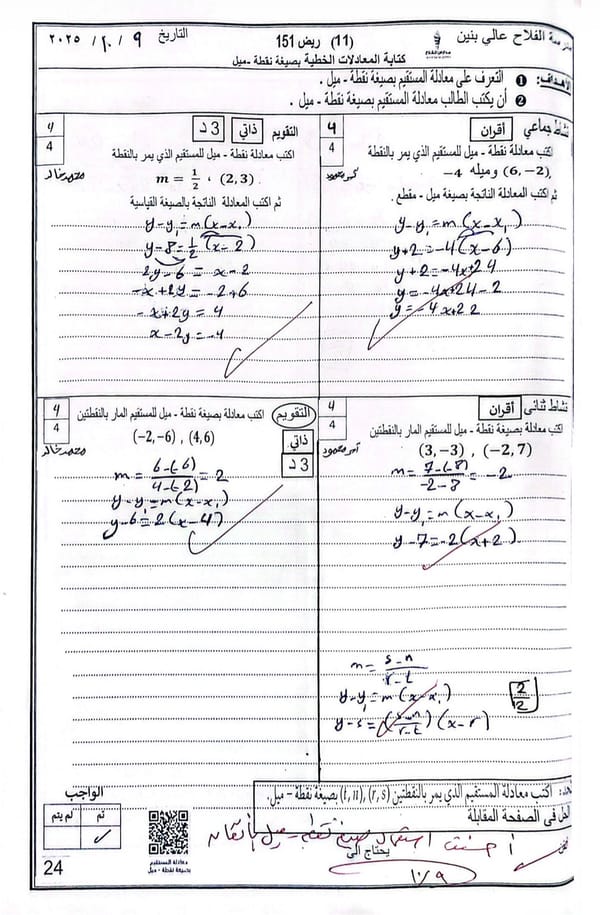 مدرسة الفلاح عالي بنين
(11) ريض 151
التاريخ ٩ / ١٠ / ٢٠٢٥
كتابة المعادلات الخطية بصيغة نقطة - ميل
الأهداف:
❶ التعرف على معادلة المستقيم بصيغة نقطة - ميل .
❷ أن يكتب الطالب معادلة المستقيم بصيغة نقطة - ميل .
نشاط جماعي
أقران
4
4
اكتب معادلة نقطة - ميل للمستقيم الذي يمر بالنقطة
(6, −2), وميله −4
ثم اكتب المعادلة الناتجة بصيغة ميل - مقطع .
y-y₁=m(x-x₁)
y+2=-4(x-6)
y+2=-4x+24
y=-4x+24-2
y=-4x+22
التقويم
ذاتي
3 د
4
4
محمد خالد
اكتب معادلة نقطة - ميل للمستقيم الذي يمر بالنقطة
m = 1/2 ، (2, 3) .
ثم اكتب المعادلة الناتجة بالصيغة القياسية
y-y₁=m(x-x₁)
y-3=1/2(x-2)
2y-6=x-2
-x+2y=-2+6
-x+2y=4
x-2y=-4
نشاط ثنائي
أقران
4
4
اكتب معادلة بصيغة نقطة - ميل للمستقيم المار بالنقطتين
(3, −3) , (−2, 7)
m=7-(-3)/-2-3=-2
y-y₁=m(x-x₁)
y-7=-2(x+2)
m=s-n/r-t
y-y₁=m(x-x₁)
y-s=(s-n/r-t)(x-r)
2/2
التقويم
ذاتي
3 د
4
4
محمد خالد
اكتب معادلة بصيغة نقطة - ميل للمستقيم المار بالنقطتين
(−2, −6) , (4, 6)
m=6-(-6)/4-(-2)=2
y-y₁=m(x-x₁)
y-6=2(x-4)
اكتب معادلة المستقيم الذي يمر بالنقطتين (r, s), (t, n) بصيغة نقطة - ميل.
الحل في الصفحة المقابلة
أحسنت استعمال صيغة نقطة - ميل بإتقان
يحتاج الى
١٠/٩
الواجب
تم
لم يتم
معادلة المستقيم
بصيغة نقطة - ميل
24